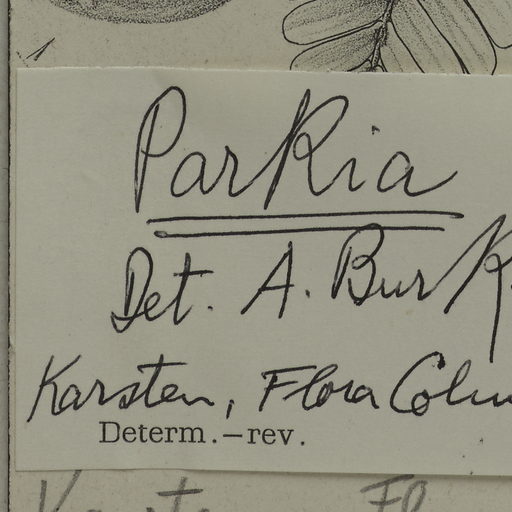 1
Parkia
Det. A. Burk
Karsten, Flora Colu
Determ.-rev.